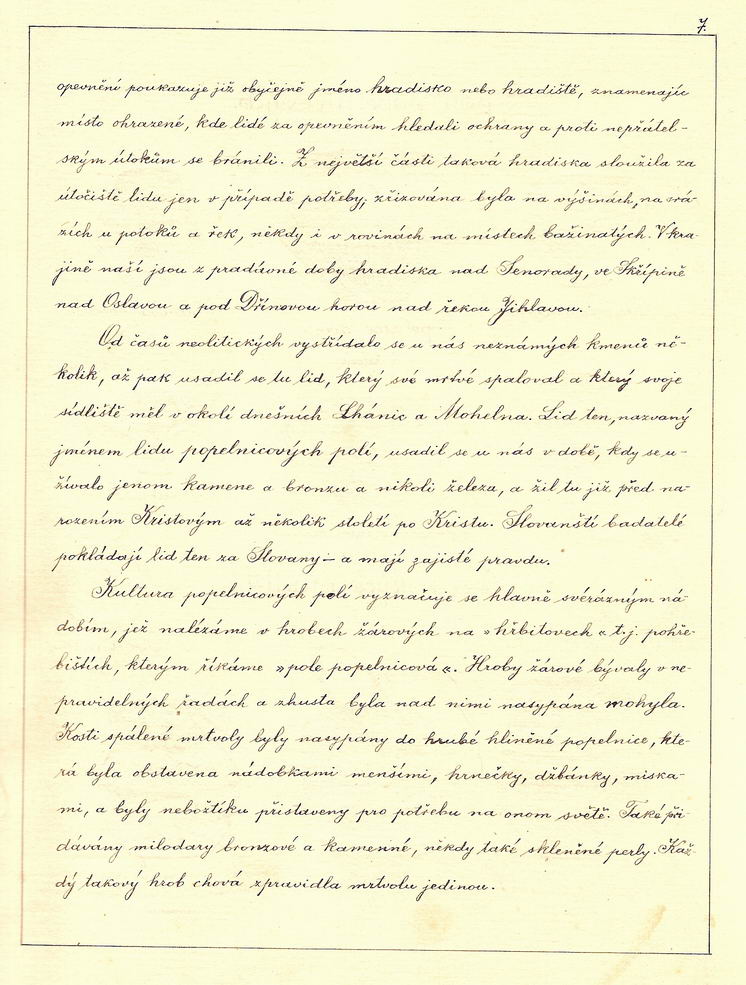 7.
opevnění poukazuje již obyčejně jméno hradisko nebo hradiště, znamenajíc
místo ohrazené, kde lidé za opevněním hledali ochrany a proti nepřátel-
ským útokům se bránili. Z největší části taková hradiska sloužila za
útočiště lidu jen v případě potřeby; zřizována byla na výšinách, na srá-
zích u potoků a řek, někdy i v rovinách na místech bažinatých. V kra-
jině naší jsou z pradávné doby hradiska nad Senorady, ve Skřípině
nad Oslavou a pod Dřínovou horou nad řekou Jihlavou.
Od časů neolitických vystřídalo se u nás neznámých kmenů ně-
kolik, až pak usadil se tu lid, který své mrtvé spaloval a který svoje
sídliště měl v okolí dnešních Lhánic a Mohelna. Lid ten, nazvaný
jménem lidu popelnicových polí, usadil se u nás v době, kdy se u-
žívalo jenom kamene a bronzu a nikoli železa, a žil tu již před na-
rozením Kristovým až několik století po Kristu. Slovanští badatelé
pokládají lid ten za Slovany – a mají zajisté pravdu.
Kultura popelnicových polí vyznačuje se hlavně svérázným ná-
dobím, jež nalézáme v hrobech žárových na » hřbitovech « t.j. pohře-
bištích, kterým říkáme » pole popelnicová «. Hroby žárové bývaly v ne-
pravidelných řadách a zhusta byla nad nimi nasypána mohyla.
Kosti spálené mrtvoly byly nasypány do hrubé hliněné popelnice, kte-
rá byla obstavena nádobkami menšími, hrnečky, džbánky, miska-
mi, a byly nebožtíku přistaveny pro potřebu na onom světě. Také při-
dávány milodary bronzové a kamenné, někdy také skleněné perly. Kaž-
dý takový hrob chová zpravidla mrtvolu jedinou.